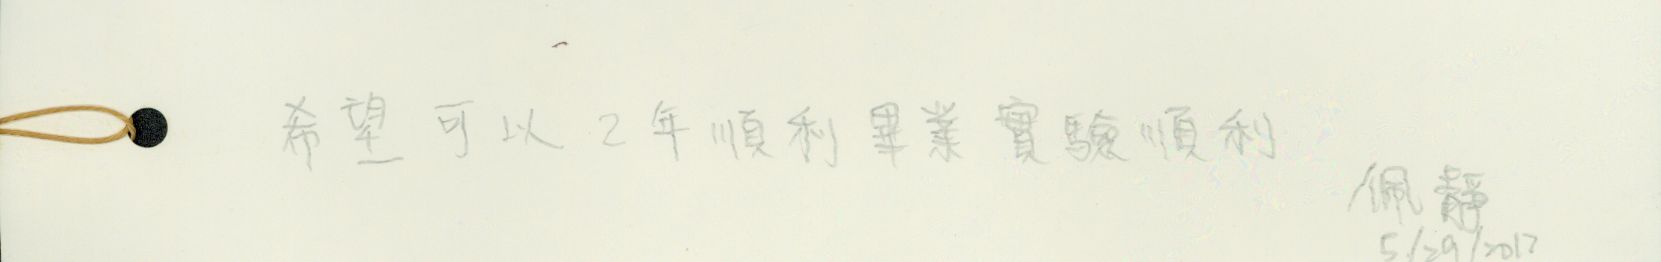 希望可以2年順利畢業實驗順利
佩靜
5/29/2017